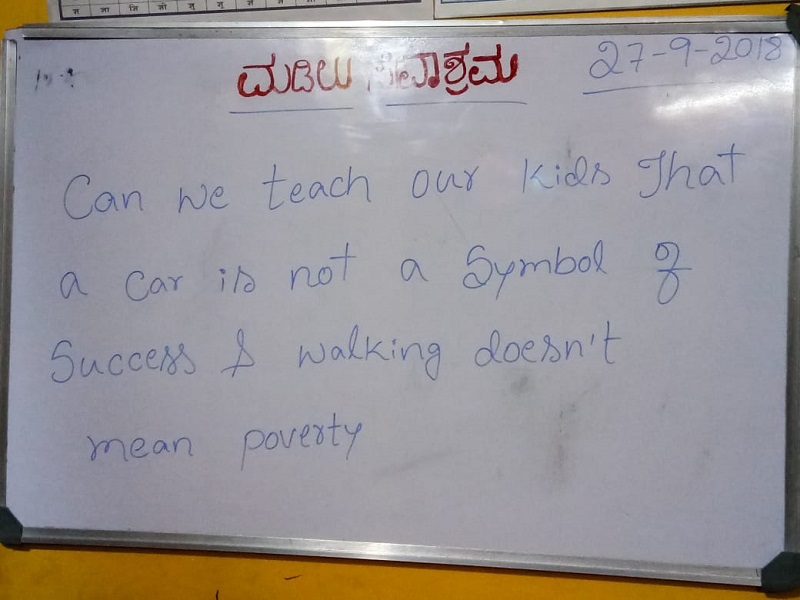 ಮಡಿಲು ಸೇವಾಶ್ರಮ 27-9-2018
Can we teach our kids That
a car is not a Symbol of
Success & walking doesn't
mean poverty